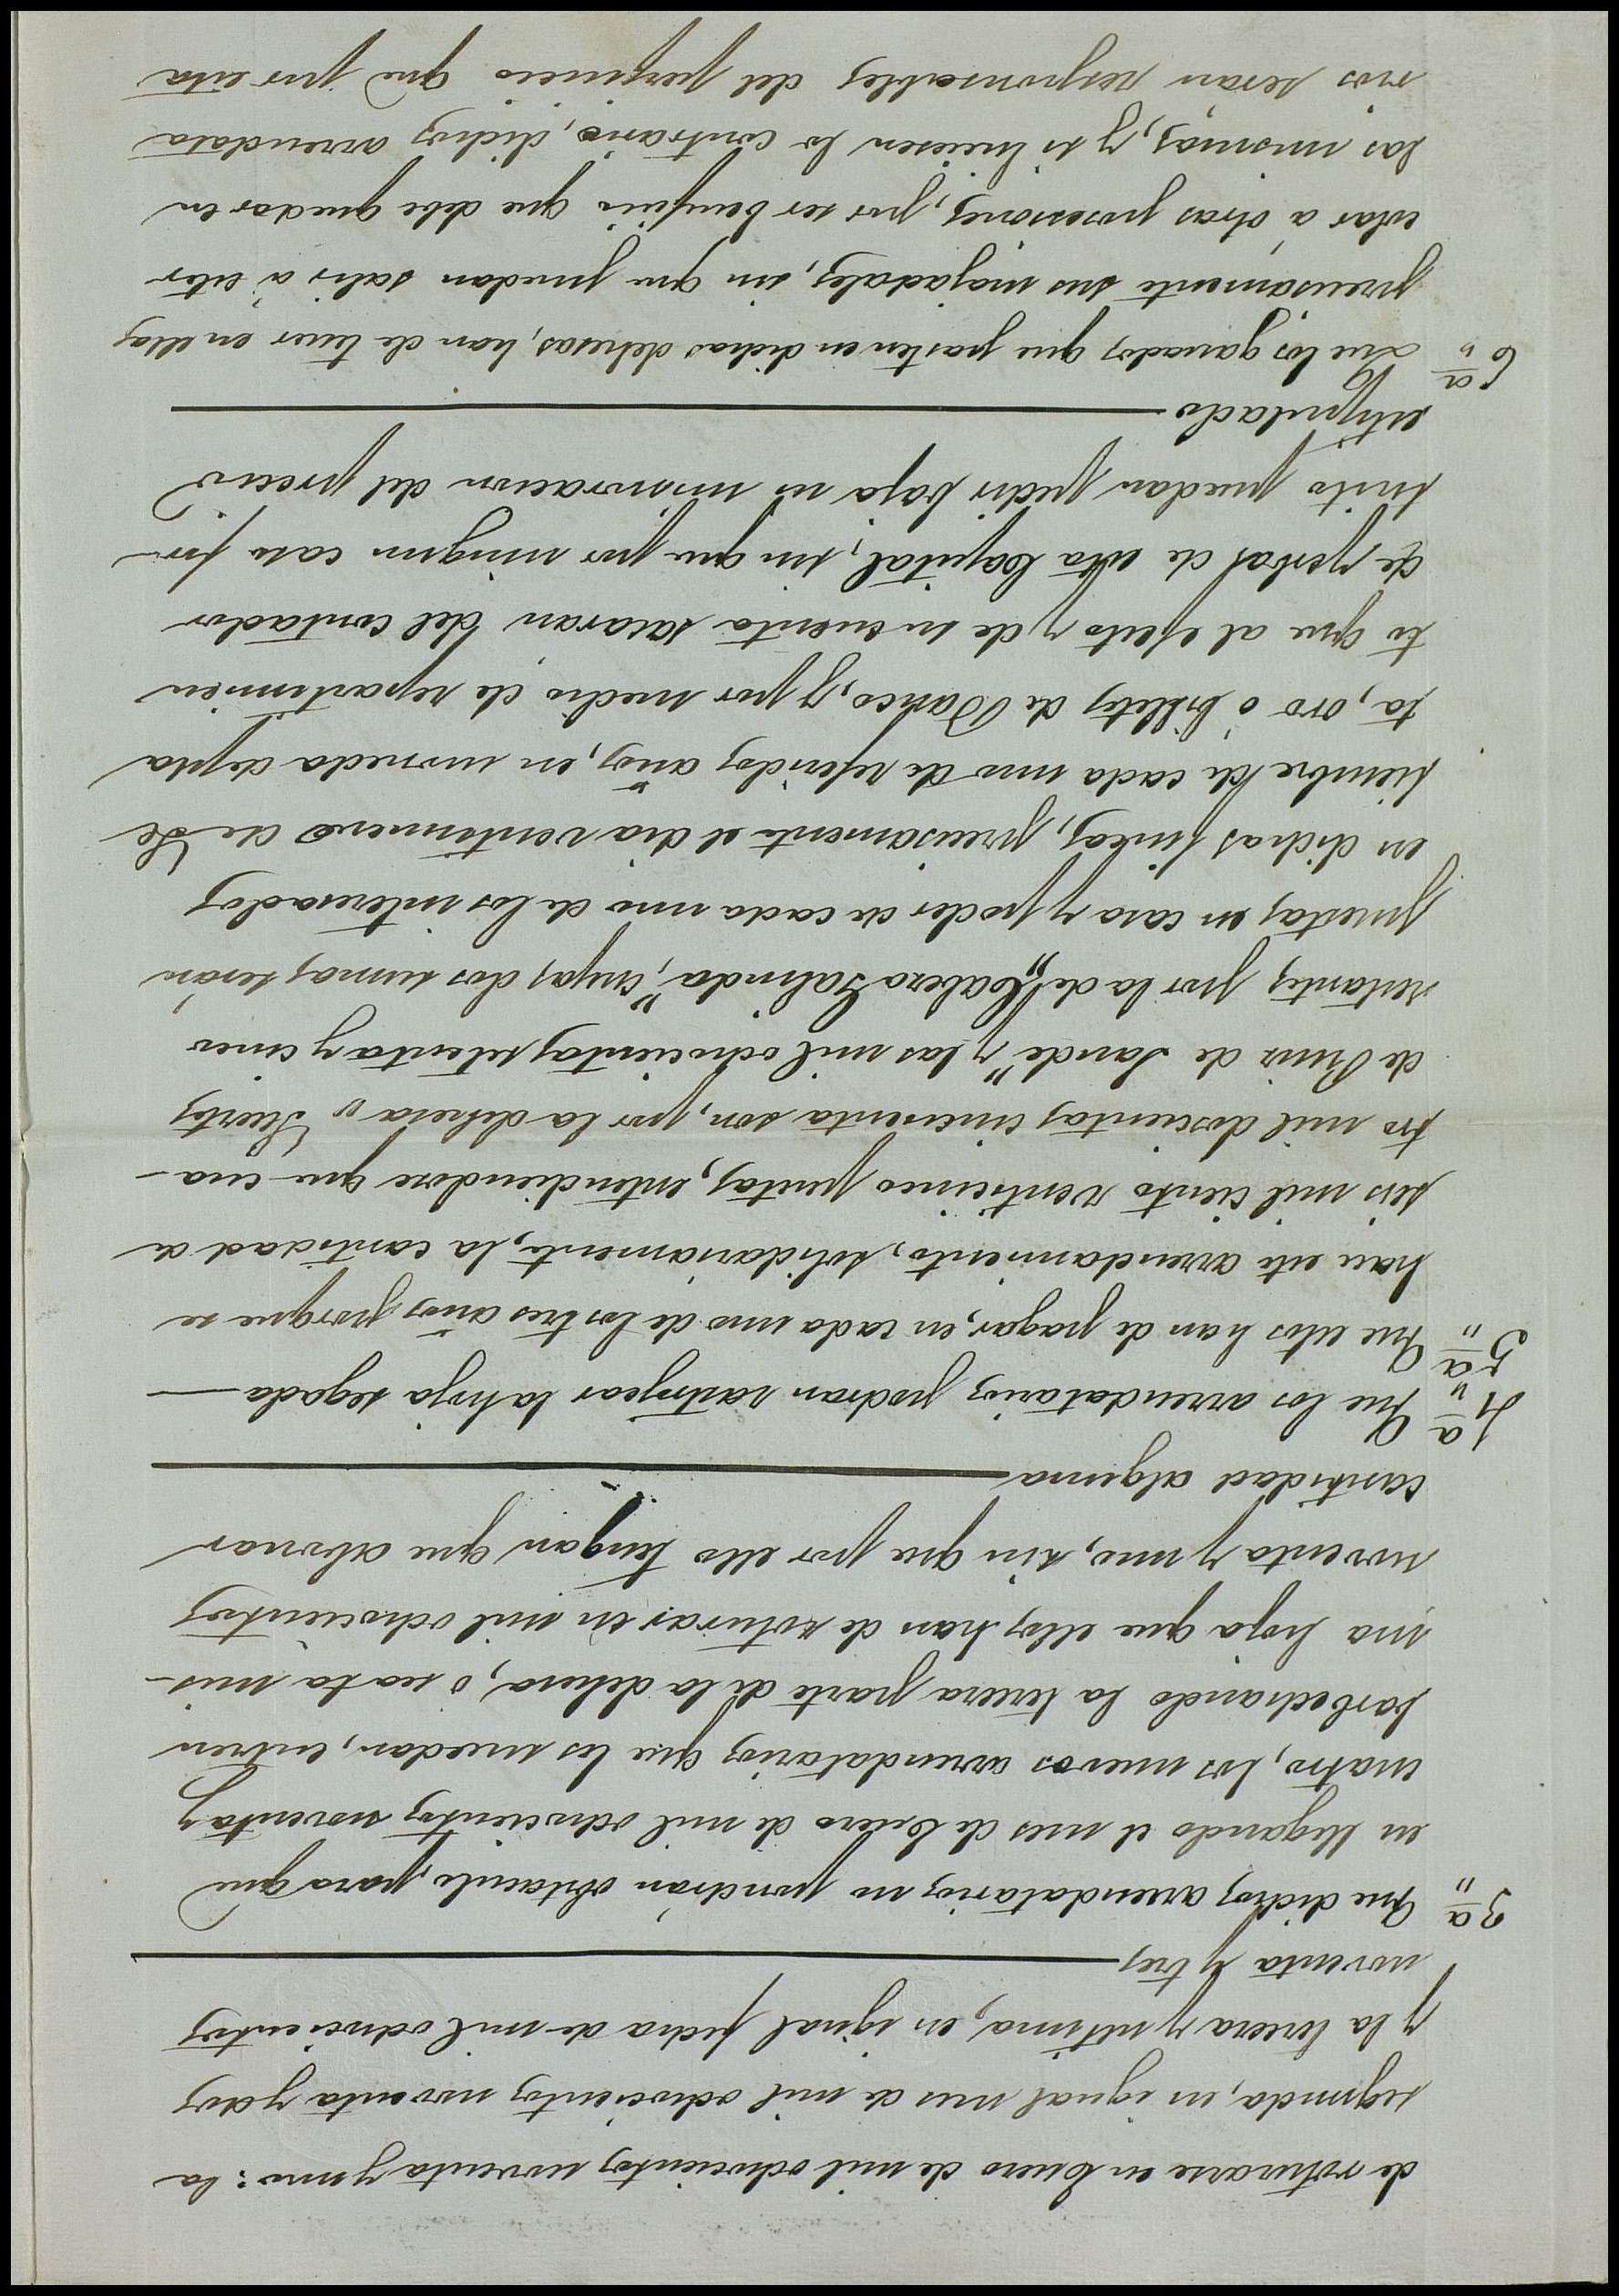 de roturarse en Enero de mil ochocientos noventa y uno: la
segunda, en igual mes de mil ochocientos noventa y dos
y la tercera y ultima, en igual fecha de mil ochocientos
noventa y tres
3ª Que dichos arrendatarios no pondrán obstáculo, para que
en llegando el mes de Enero de mil ochocientos noventa y
cuatro, los nuevos arrendatarios que los sucedan, entren
barbechando la tercera parte de la dehesa, o sea la mis-
ma hoja que ellos han de roturar en mil ochocientos
noventa y uno, sin que por ello tengan que abonar
cantidad alguna
4ª Que los arrendatarios podran rastrojear la hoja segada
5ª Que estos han de pagar, en cada uno de los tres años porque se
hace este arrendamiento, solidariamente, la cantidad de
seis mil ciento veinticinco pesetas, entendiendose que cua-
tro mil doscientas cincuenta son, por la dehesa "Suertes
de Ruiz de Sande" y las mil ochocientas setenta y cinco
restantes por la de "Cabeza Galinda", cuyas dos sumas serán
puestas en casa y poder de cada uno de los interesados
en dichas fincas, precisamente el dia veintinueve de Se
tiembre de cada uno de referidos años, en moneda de pla
ta, oro ó billetes de Banco, y por medio de repartimien
to que al efecto y de su cuenta sacaran del contador
de yerbas de esta Capital, sin que por ningun caso for-
tuito puedan pedir baja ni minoracion del precio
estipulado
6ª Que los ganados que pasten en dichas dehesas, han de tener en ellas
precisamente sus majadales, sin que puedan salir á ester
colar á otras posesiones, por ser beneficio que debe quedar en
las mismas, y si hiciesen lo contrario, dichos arrendata
rios seran responsables del perjuicio que por esta